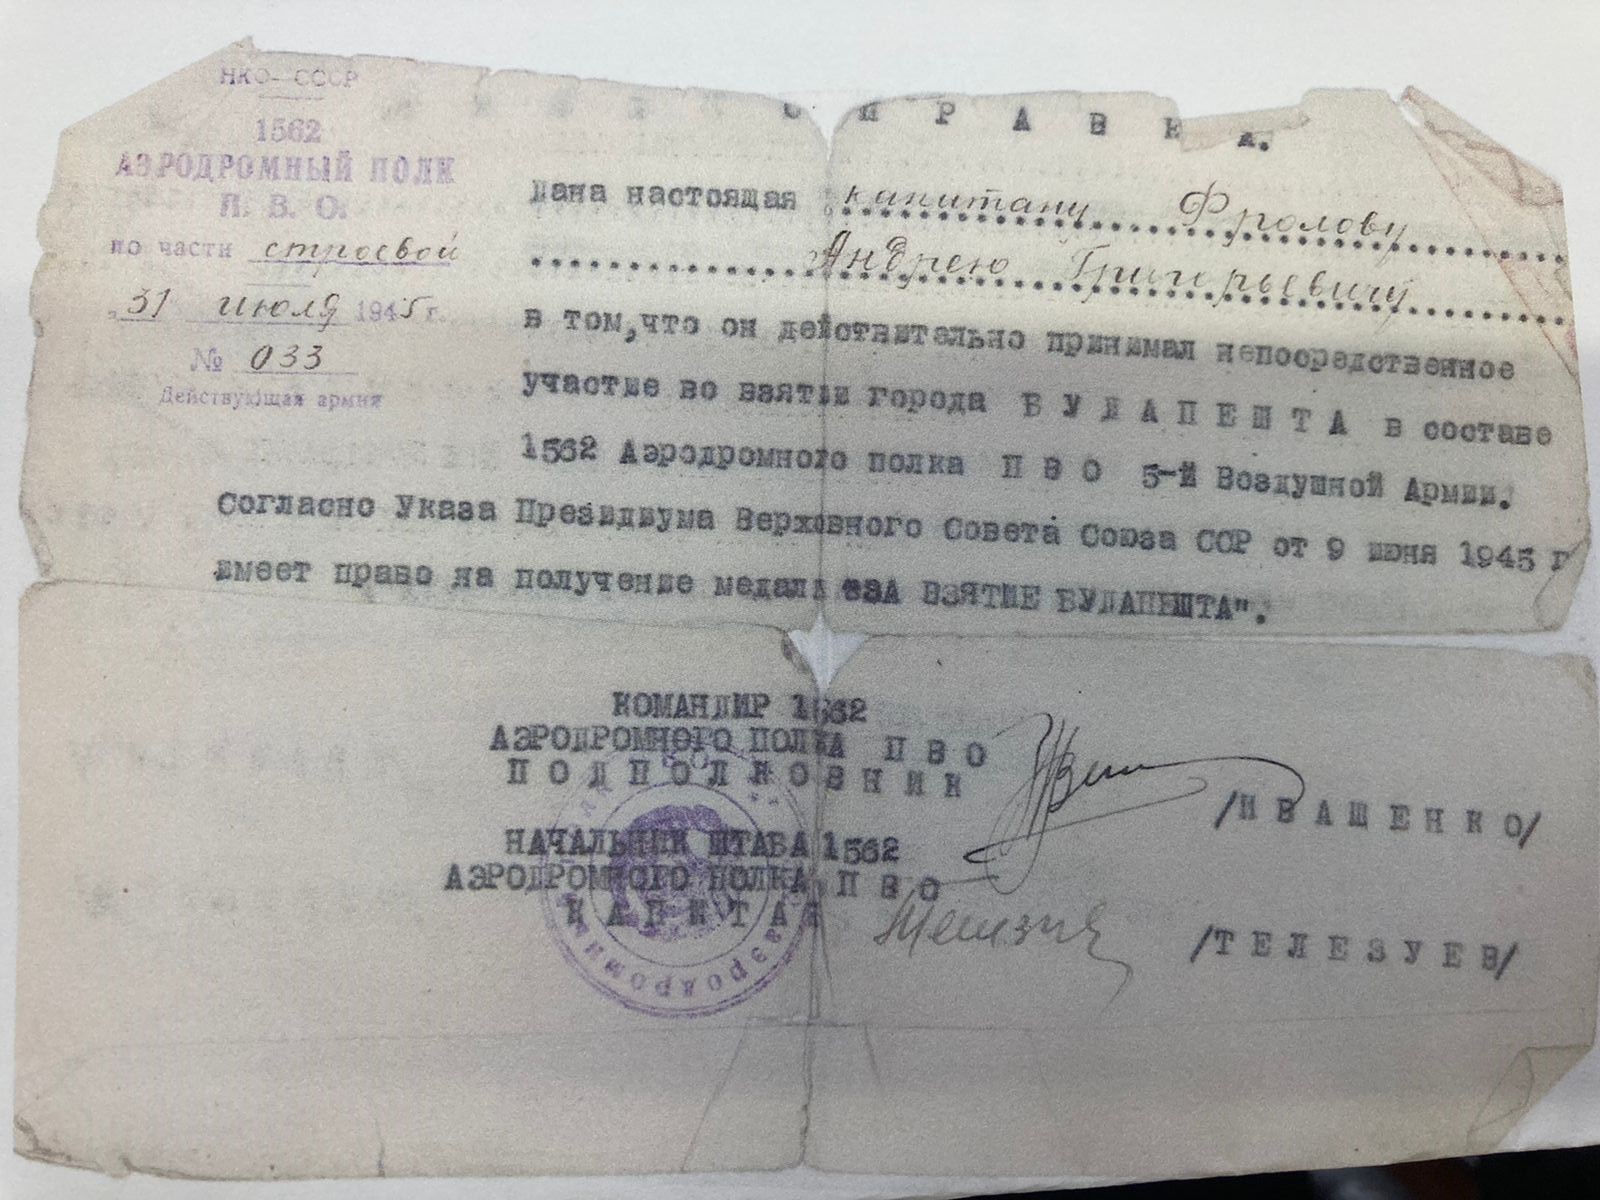 НКО- СССР
1562
АЭРОДРОМНЫЙ ПОЛК
П. В. О.
по части строевой
„31 июля 1945 г.
№ 033
Действующая армия
СПРАВКА.
Дана настоящая капитану Фролову
Андрею Григорьевичу
в том,что он действительно принимал непосредственное
участие во взятии города БУДАПЕШТА в составе
1562 Аэродромного полка ПВО 5-й Воздушной Армии.
Согласно Указа Президиума Верховного Совета Союза ССР от 9 июня 1945 г
имеет право на получение медали "ЗА ВЗЯТИЕ БУДАПЕШТА".
КОМАНДИР 1562
АЭРОДРОМНОГО ПОЛКА ПВО
ПОДПОЛКОВНИК
/ИВАШЕНКО/
НАЧАЛЬНИК ШТАБА 1562
АЭРОДРОМНОГО ПОЛКА ПВО
КАПИТАН
/ТЕЛЕЗУЕВ/